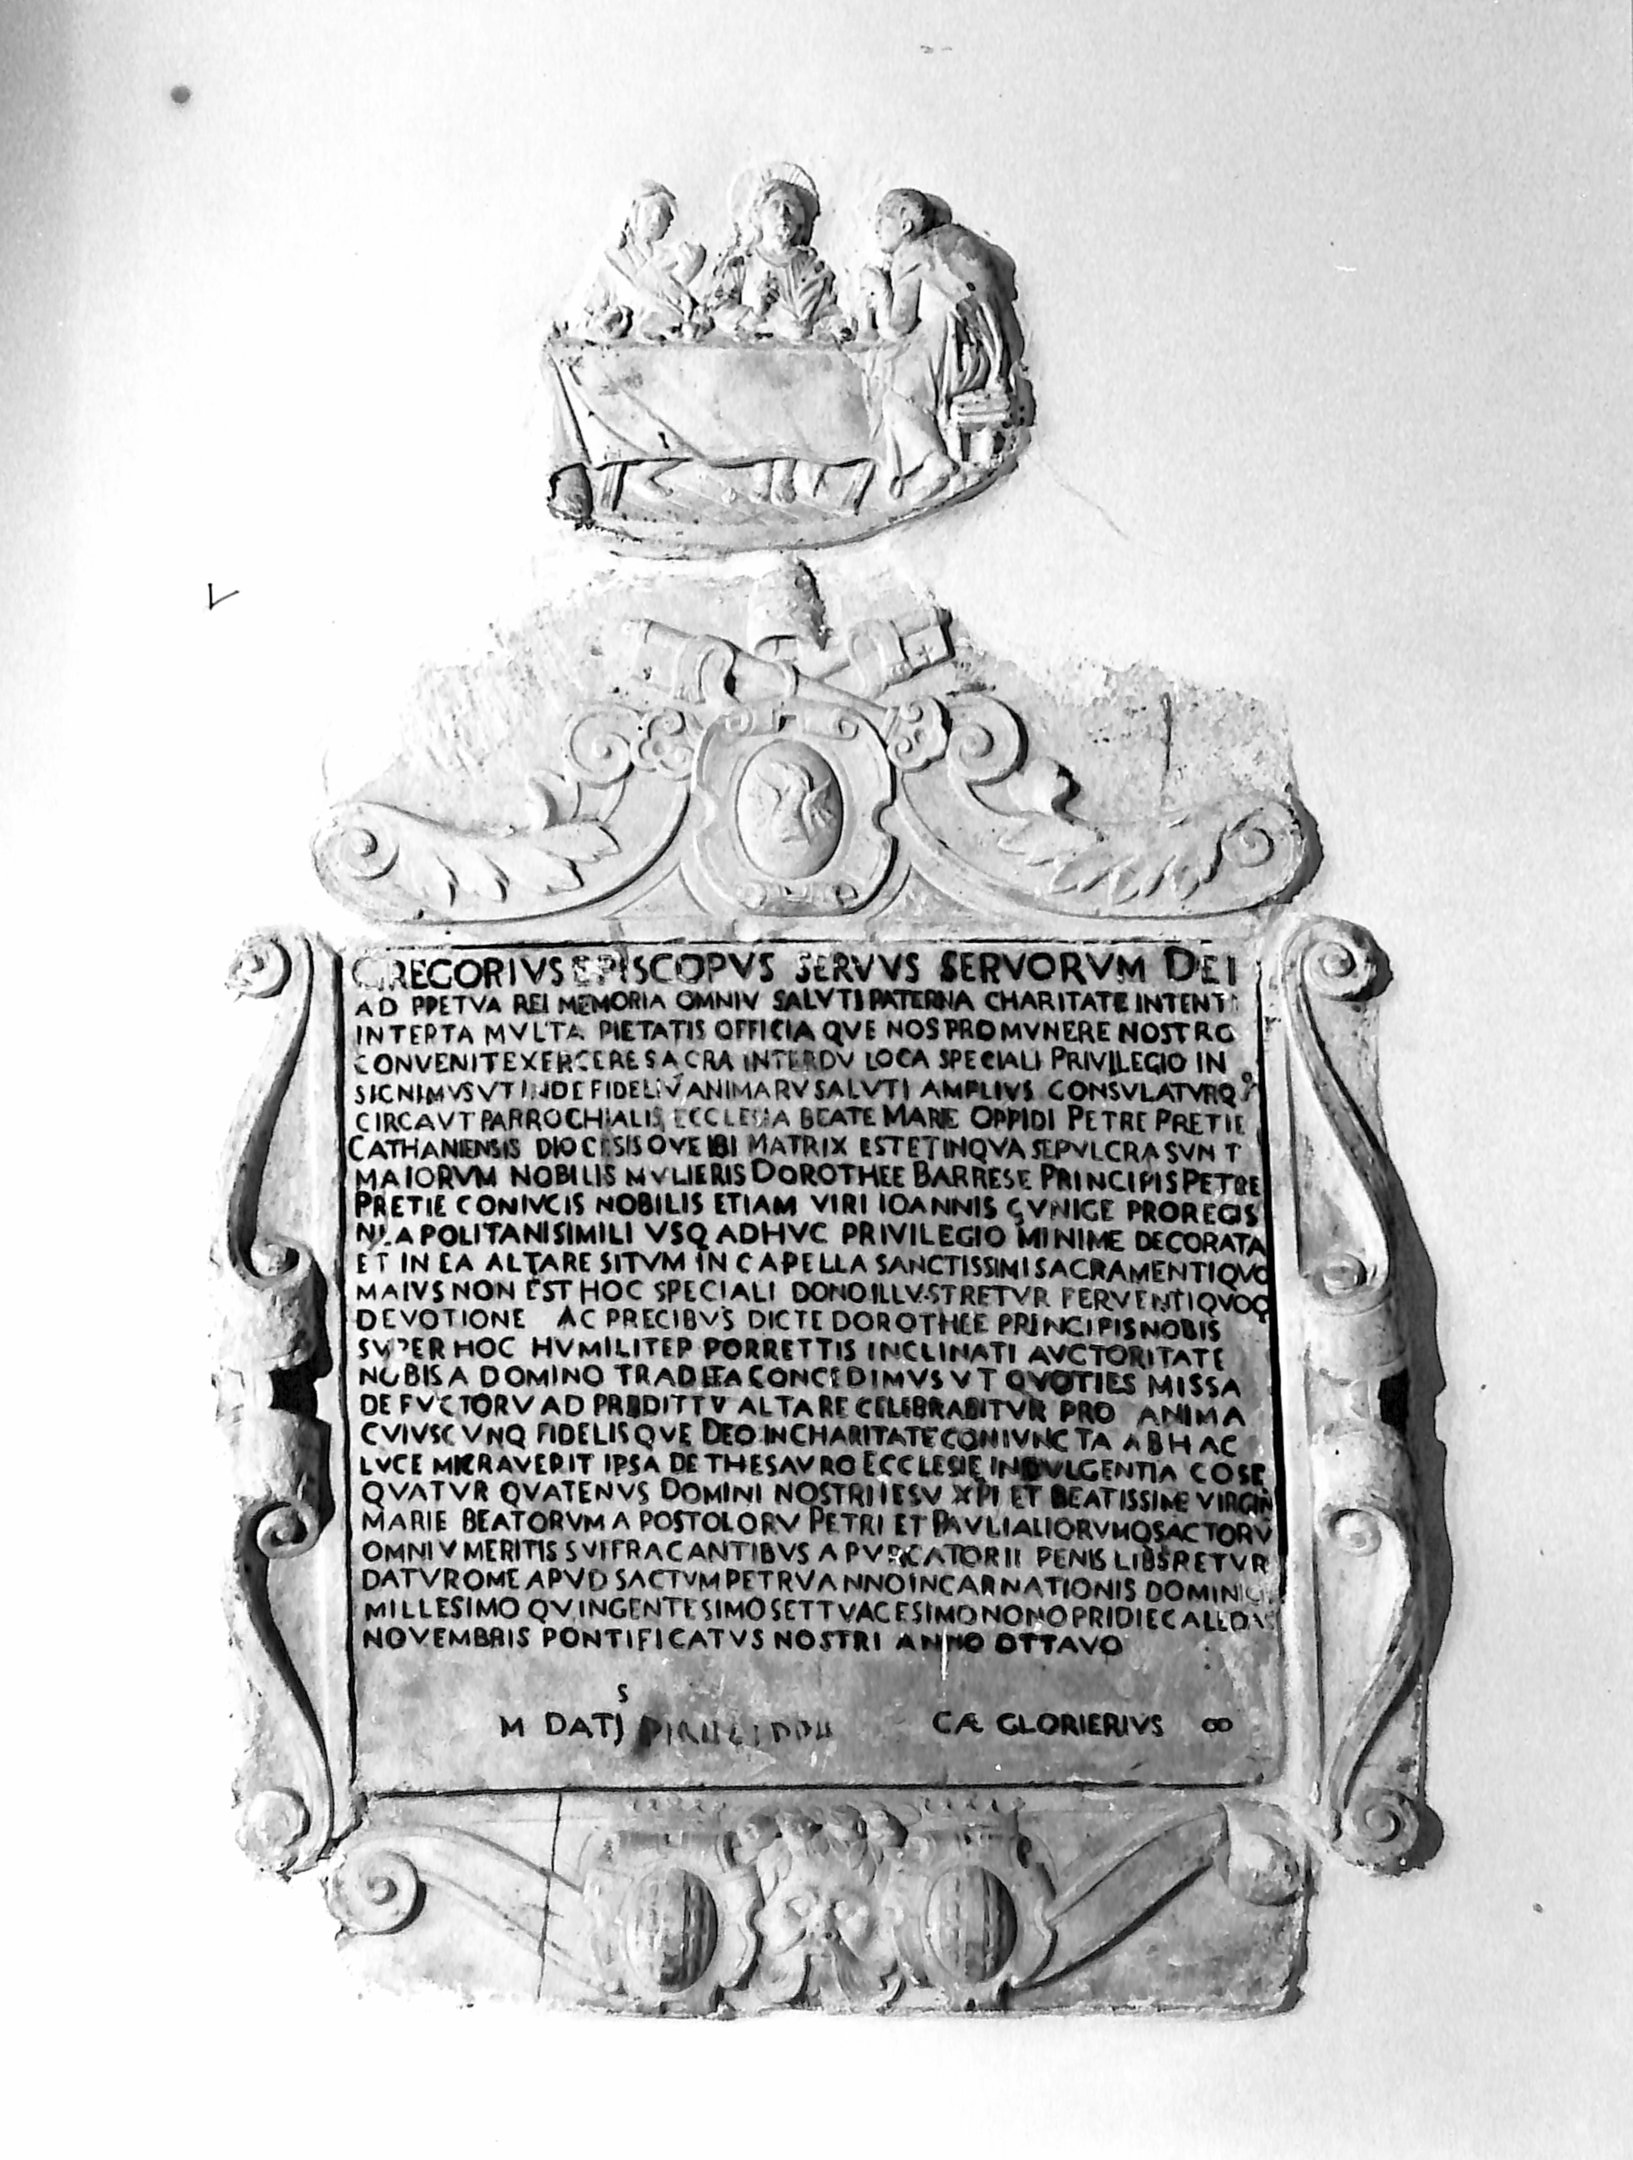 GREGORIVS EPISCOPVS SERVVS SERVORVM DEI
AD PPETVA REI MEMORIA OMNIV SALVTI PATERNA CHARITATE INTENTI
INTERTA MVLTA PIETATIS OFFICIA QVE NOS PRO MVNERE NOSTRO
CONVENIT EXERCERE SACRA INTERDV LOCA SPECIALI PRIVILEGIO IN
SIGNIMVS VT INDE FIDELIV ANIMARV SALVTI AMPLIVS CONSVLATVR Q
CIRCA VT PARROCHIALIS ECCLESIA BEATE MARIE OPPIDI PETRE PRETIE
CATHANIENSIS DIOCESIS QVE IBI MATRIX EST ET IN QVA SEPVLCRA SVNT
MAIORVM NOBILIS MVLIERIS DOROTHEE BARRESE PRINCIPIS PETRE
PRETIE CONIVGIS NOBILIS ETIAM VIRI IOANNIS ÇVNIGE PROREGIS
NEAPOLITANI SIMILI VSQ ADHVC PRIVILEGIO MINIME DECORATA
ET IN EA ALTARE SITVM IN CAPELLA SANCTISSIMI SACRAMENTI QVO
MAIVS NON EST HOC SPECIALI DONO ILLVSTRETVR FERVENTI QVOQ
DEVOTIONE AC PRECIBVS DICTE DOROTHEE PRINCIPIS NOBIS
SVPER HOC HVMILITER PORRETTIS INCLINATI AVCTORITATE
NOBIS A DOMINO TRADITA CONCEDIMVS VT QVOTIES MISSA
DEFVCTORV AD PREDITTV ALTARE CELEBRABITVR PRO ANIMA
CVIVSCVNQ FIDELIS QVE DEO IN CHARITATE CONIVNCTA AB HAC
LVCE MIGRAVERIT IPSA DE THESAVRO ECCLESIE INDVLGENTIA COSE
QVATVR QVATENVS DOMINI NOSTRI IESV XPI ET BEATISSIME VIRGIN
MARIE BEATORVM APOSTOLORV PETRI ET PAVLI ALIORVMQ SACTORV
OMNIV MERITIS SVFFRAGANTIBVS A PVRGATORII PENIS LIBERETVR
DATV ROME APVD SACTVM PETRV ANNO INCARNATIONIS DOMINICE
MILLESIMO QVINGENTESIMO SETTVAGESIMO NONO PRIDIE CALLDAS
NOVEMBRIS PONTIFICATVS NOSTRI ANNO OTTAVO
M DATJ S CÆ GLORIERIVS